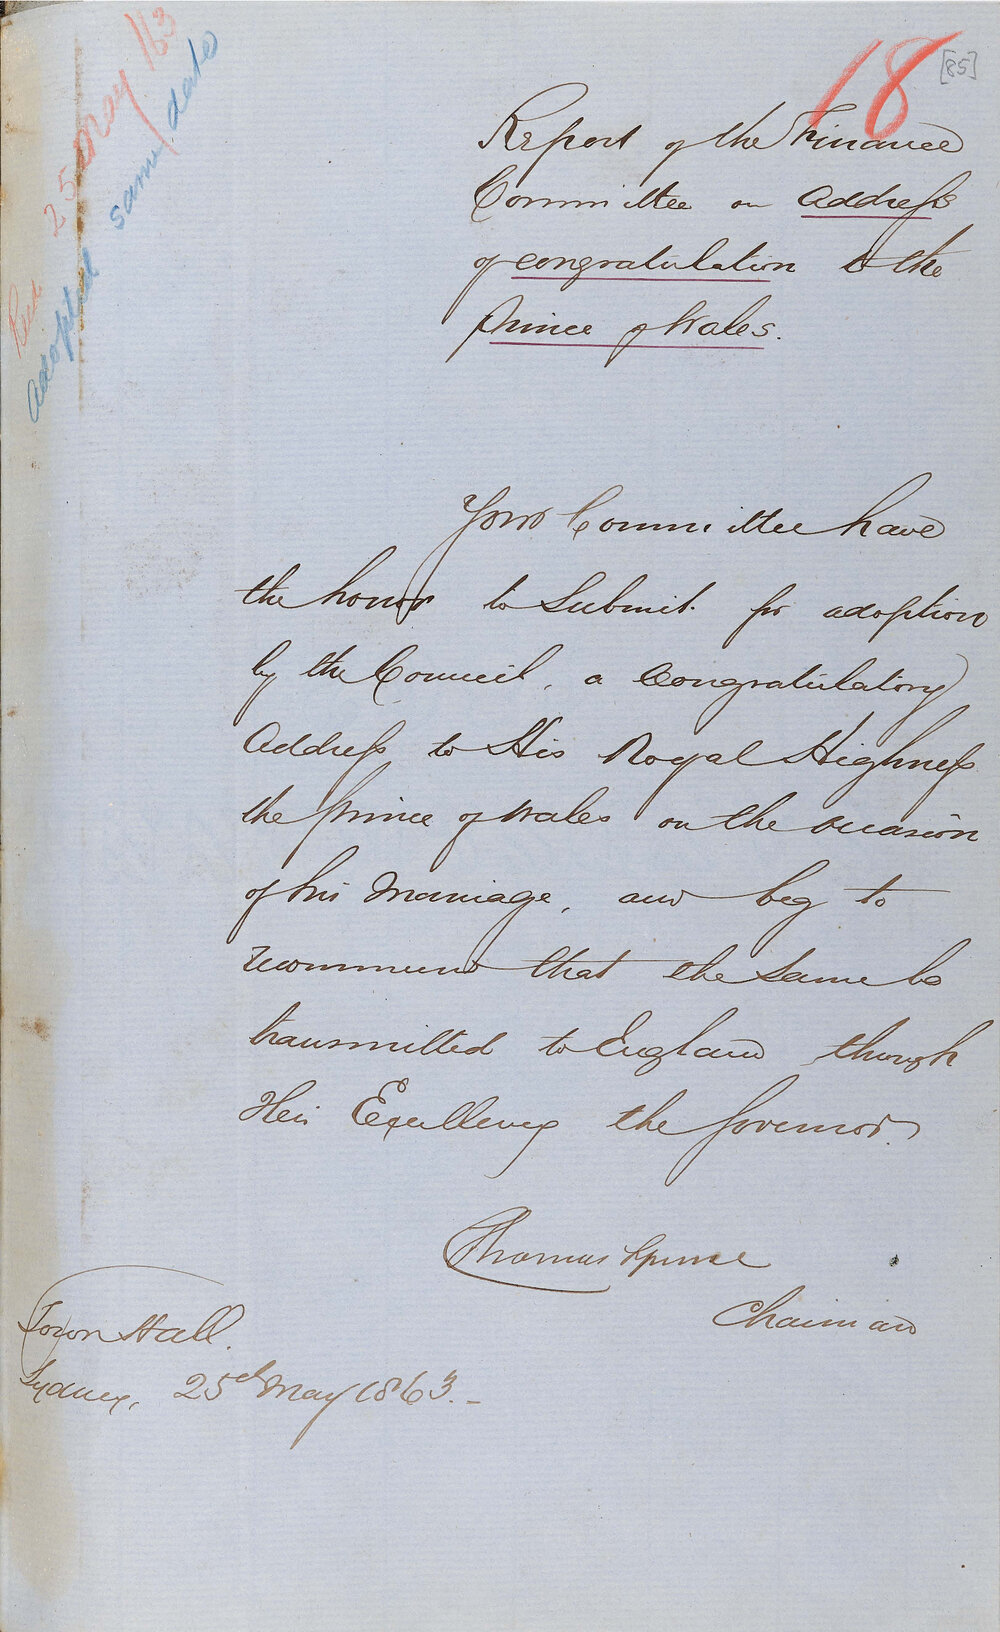 Recd 25 May /63
adopted same date
18
[85]
Report of the Finance
Committee on Address
of congratulation to the
Prince of Wales.
Your Committee have
the honor to submit for adoption
by the Council, a Congratulatory
Address to His Royal Highness
the Prince of Wales on the occasion
of his Marriage, and beg to
recommend that the same be
transmitted to England through
His Excellency the Governor.
Thomas Spence
Chairman
Town Hall.
Sydney, 25th May 1863.-